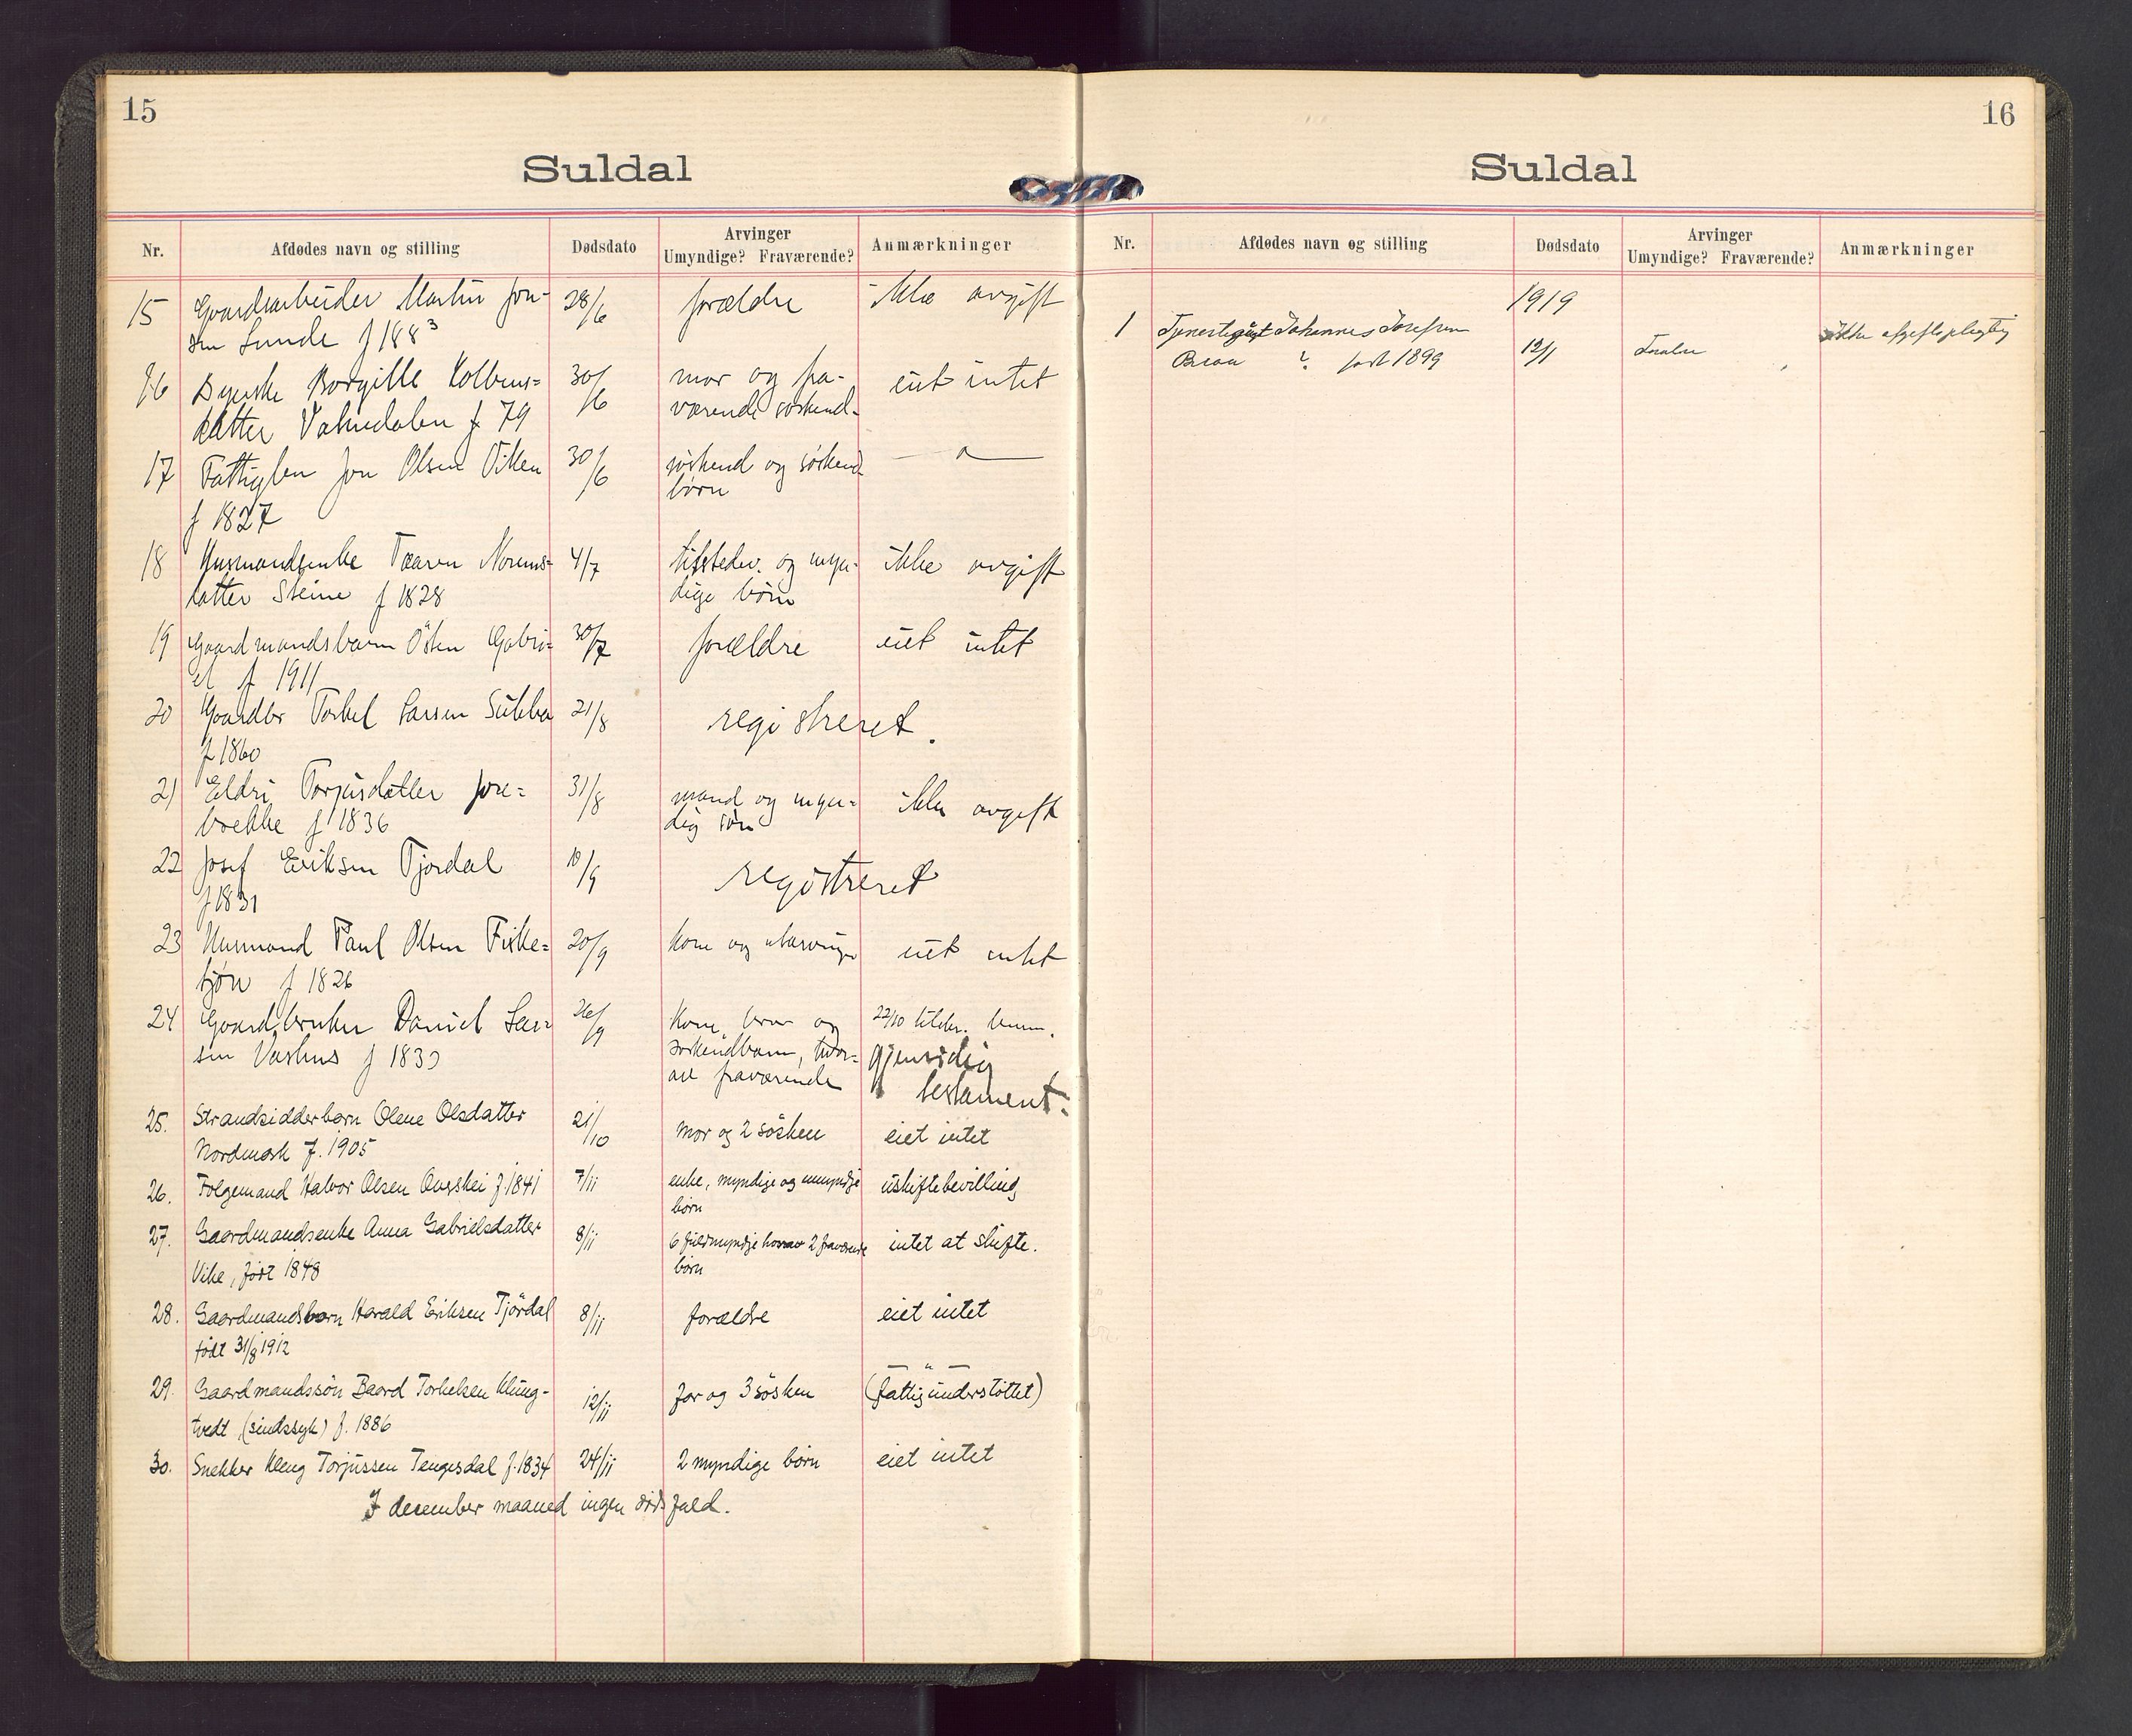 15
Suldal
Nr. Afdødes navn og stilling Dødsdato Arvinger Umyndige? Fraværende? Anmærkninger
15 Gaardarbeider Martin Jon- 28/6 forældre ikke avgift
sen Lunde f 1883
16 Borgille Kolbens= 30/6 mor og fra- eiet intet
datter f 79 værende søskend-
17 Fattiglem Jon Olsen Viken 30/6 søskend og søskend
f 1827 børn
18 Husmandsenke Taaren 4/7 tilstedev. og myn- ikke avgift
datter Steine f 1828 dige børn
19 Gaardmandsbarn Østen Gabri= 30/7 forældre eiet intet
el f 1911
20 Gaardbr Torkel Larsen 21/8 registreret.
f 1860
21 Eldri Torjusdatter Jore= 31/8 mand og myn= ikke avgift
brekke f 1836 dig søn
22 Josef Eriksen Tjordal 10/9 registreret
f 1831
23 Husmand Paul Olsen Fiske= 20/9 kone og utarvinge eiet intet
tjøn f 1826
24 Gaardbruker Daniel Lar= 26/9 Kone, bror og 22/10
sen Vashus f 1830 søskendbarn, hvor= gjensidig
av fraværende testament.
25. Strandsidderbarn Olene Olsdatter 21/10 mor og 2 søsken eiet intet
Nordmark f. 1905
26. Folgemand Halvor Olsen f. 1841 7/11 enke, myndige og umyndige uskiftebevilling
børn
27. Gaardmandsenke Anna Gabrielsdatter 8/11 6 fuldmyndige hvorav 2 fraværende intet at skifte.
Vike, født 1848 børn
28. Gaardmandsbarn Harald Eriksen Tjördal 8/11 forældre eiet intet
født 31/8 1912
— " —
29. Gaardmandssön Baard Torkelsen Kling- 12/11 far og 3 søsken (fattigunderstöttet)
tvedt (sindssyk) f. 1886
30. Snekker Kleng Torjussen Tengesdal f. 1834 24/11 2 myndige börn eiet intet
I december maaned ingen dødsfald.
16
Suldal
Nr. Afdødes navn og stilling Dødsdato Arvinger Umyndige? Fraværende? Anmærkninger
1919
1 Tjenestegut Johannes Josefsen ikke afgiftspligtig
? født 1899 12/1